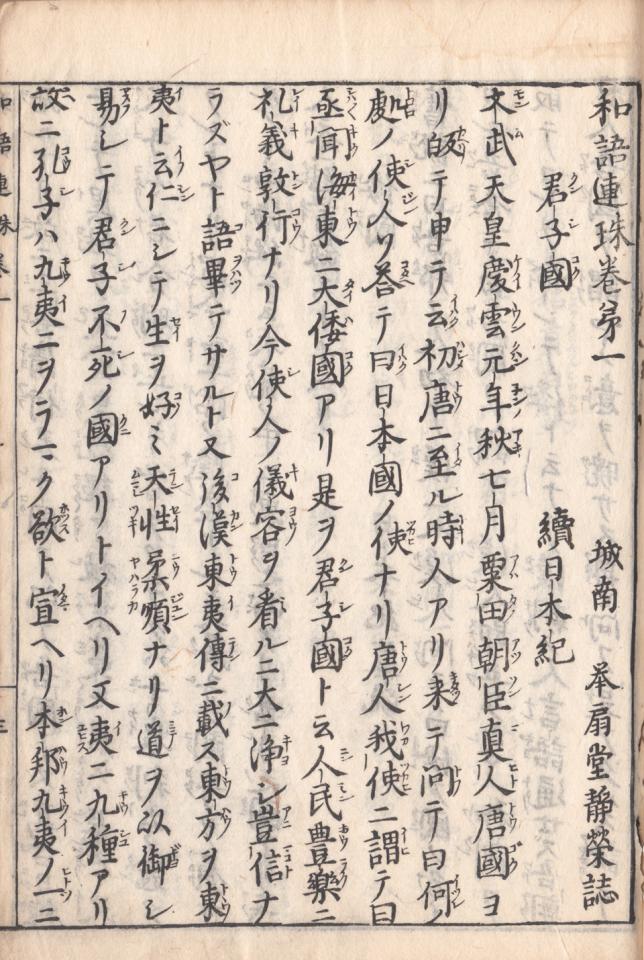 和語連珠卷第一　城南　举扇堂静榮誌
君子國　續日本紀
文武天皇慶雲元年秋七月粟田朝臣真人唐國ヨ
リ皈テ申テ云初唐ニ至ル時人アリ来テ問テ曰何ノ
処ノ使人ソ答テ曰日本國ノ使ナリ唐人我使ニ謂テ曰
亟聞海東ニ大倭國アリ是ヲ君子國ト云人民豊樂ニ
礼義敦行ナリ今使人ノ儀容ヲ看ルニ大ニ浄シ豈信ナ
ラズヤト語畢テサルト又後漢東夷傳ニ載ス東方ヲ東
夷ト云仁ニシテ生ヲ好ミ天性柔順ナリ道ヲ以御シ
易シテ君子不死ノ國アリトイヘリ又夷ニ九種アリ
故ニ孔子ハ九夷ニヲラマク欲ト宣ヘリ本邦九夷ノ一ニ
和語連珠卷一
三